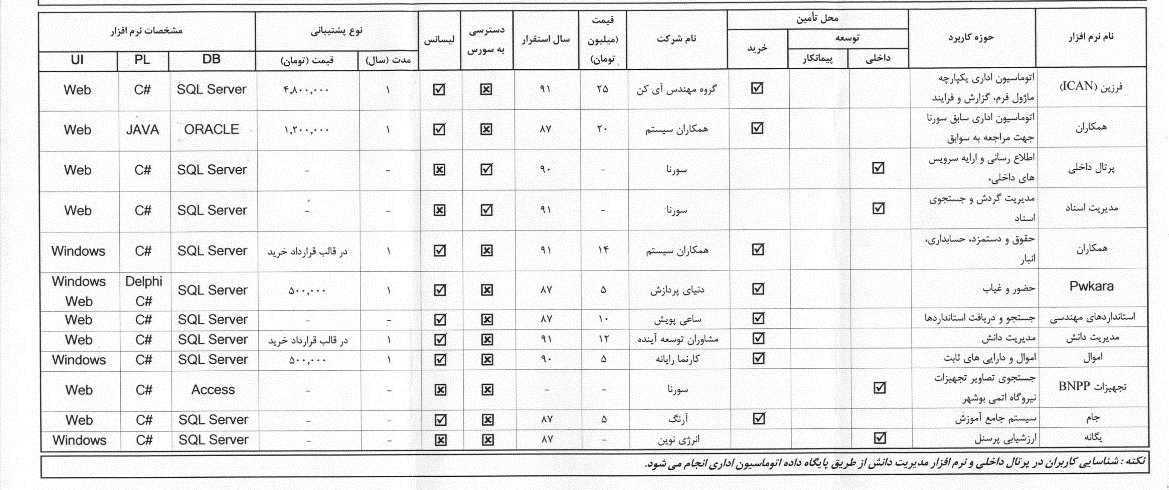 نام نرم افزار | حوزه کاربرد | محل تأمین | قیمت (میلیون تومان) | نام شرکت | سال استقرار | دسترسی به سورس | لیسانس | نوع پشتیبانی | مشخصات نرم افزار
توسعه | خرید
داخلی | پیمانکار | مدت (سال) | قیمت (تومان) | DB | PL | UI
فرزین (ICAN) | اتوماسیون اداری یکپارچه | ☑ | ۲۵ | گروه مهندس آی کن | ۹۱ | ☒ | ☑ | ۱ | ۴,۸۰۰,۰۰۰ | SQL Server | C# | Web
ماژول فرم، گزارش و فرایند
همکاران | اتوماسیون اداری سابق سورنا | ☑ | ۲۰ | همکاران سیستم | ۸۷ | ☒ | ☑ | ۱ | ۱,۲۰۰,۰۰۰ | ORACLE | JAVA | Web
جهت مراجعه به سوابق
پرتال داخلی | اطلاع رسانی و ارایه سرویس | ☑ | - | سورنا | ۹۰ | ☑ | ☒ | - | - | SQL Server | C# | Web
های داخلی،
مدیریت اسناد | مدیریت گردش و جستجوی | ☑ | - | سورنا | ۹۱ | ☑ | ☒ | - | - | SQL Server | C# | Web
اسناد
همکاران | حقوق و دستمزد، حسابداری، | ☑ | ۱۴ | همکاران سیستم | ۹۱ | ☒ | ☑ | ۱ | در قالب قرارداد خرید | SQL Server | C# | Windows
انبار
Pwkara | حضور و غیاب | ☑ | ۵ | دنیای پردازش | ۸۷ | ☒ | ☑ | ۱ | ۵۰۰,۰۰۰ | SQL Server | Delphi | Windows
C# | Web
استانداردهای مهندسی | جستجو و دریافت استانداردها | ☑ | ۱۰ | ساعی پویش | ۸۷ | ☒ | ☑ | - | - | SQL Server | C# | Web
مدیریت دانش | مدیریت دانش | ☑ | ۱۲ | مشاوران توسعه آینده | ۹۱ | ☒ | ☑ | ۱ | در قالب قرارداد خرید | SQL Server | C# | Web
اموال | اموال و دارایی های ثابت | ☑ | ۵ | کارنما رایانه | ۹۰ | ☒ | ☑ | ۱ | ۵۰۰,۰۰۰ | SQL Server | C# | Windows
تجهیزات BNPP | جستجوی تصاویر تجهیزات | ☑ | - | سورنا | - | ☒ | ☒ | - | - | Access | C# | Web
نیروگاه اتمی بوشهر
جام | سیستم جامع آموزش | ☑ | ۵ | آرنگ | ۸۷ | ☒ | ☑ | - | - | SQL Server | C# | Web
یگانه | ارزشیابی پرسنل | ☑ | - | انرژی نوین | ۸۷ | ☒ | ☒ | - | - | SQL Server | C# | Windows
نکته : شناسایی کاربران در پرتال داخلی و نرم افزار مدیریت دانش از طریق پایگاه داده اتوماسیون اداری انجام می شود.